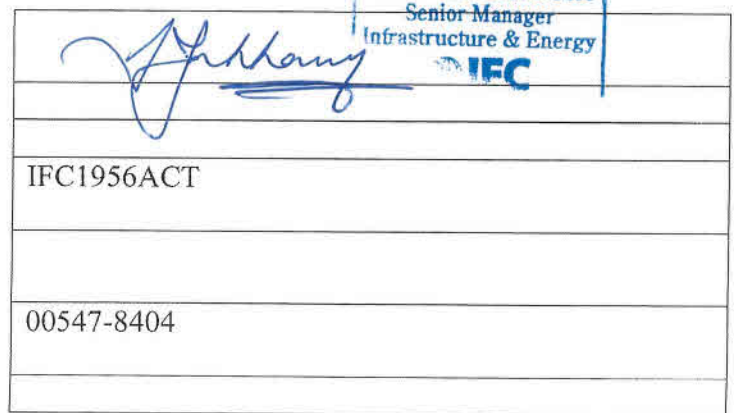 Senior Manager
Infrastructure & Energy
IFC
IFC1956ACT
00547-8404